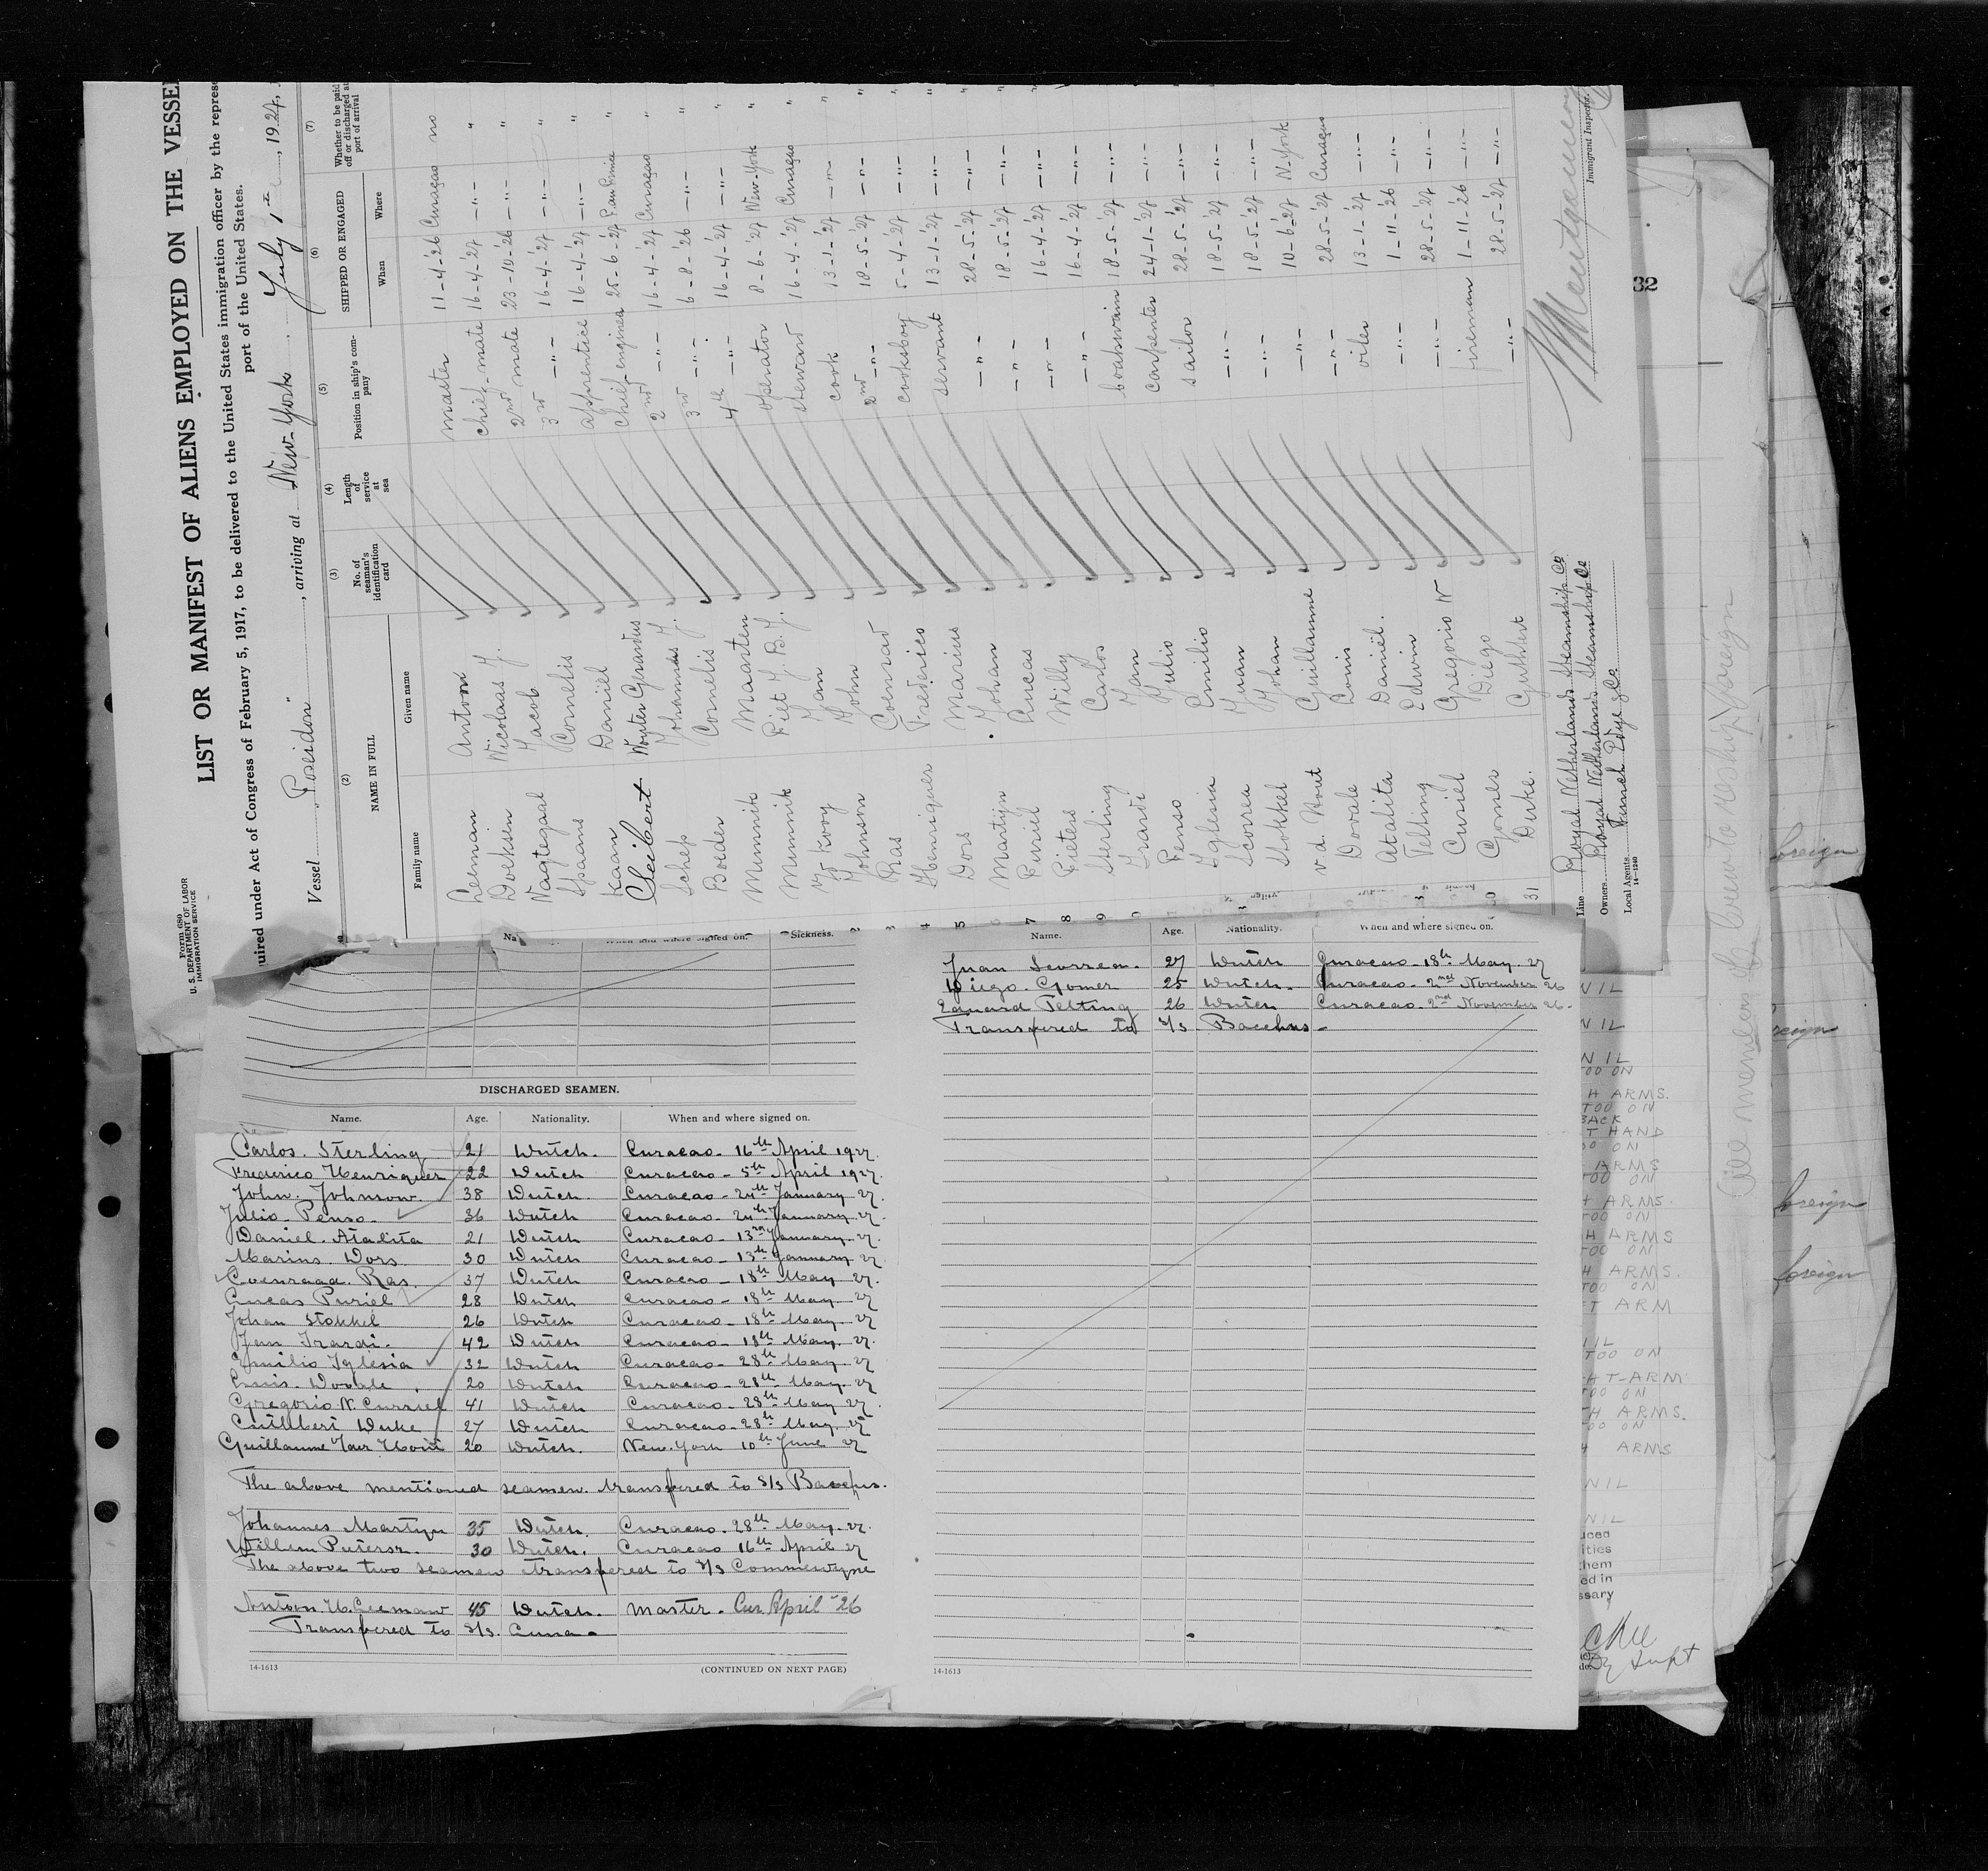 Form 680
U. S. DEPARTMENT OF LABOR
IMMIGRATION SERVICE
LIST OR MANIFEST OF ALIENS EMPLOYED ON THE VESSE
uired under Act of Congress of February 5, 1917, to be delivered to the United States immigration officer by the represe
port of the United States.
Vessel "Poseidon", arriving at New-York July 1st, 1927,
(2) (3) (4) (5) (6) (7)
NAME IN FULL No. of seaman's identification card Length of service at sea Position in ship's company SHIPPED OR ENGAGED Whether to be paid off or discharged at port of arrival
Family name Given name When Where
Leeman Antoni master 11-4-26 Curaçao no
Doeksen Nicolaas J. chief-mate 16-4-'27 -"- "
Nagtegaal Jacob 2nd mate 23-10-'26 -"- "
Spaans Cornelis 3rd -"- 16-4-'27 -"- "
Kaan Daniël apprentice 16-4-'27 -"- "
Cleibert Wouter Gerardus chief-engineer 25-6-'27 Port au Prince "
Schep Johannes J. 2nd -"- 16-4-'27 Curaçao "
Boeder Cornelis 3rd -"- 6-8-'26 -"- "
Minnik Maarten 4th -"- 16-4-'27 -"- "
Minnik Piet J. B. J. operator 8-6-'27 New-York "
v. Kooy Jan steward 16-4-'27 Curaçao "
Johnson John cook 13-1-'27 -"- "
Ras Coenrad 2nd -"- 18-5-'27 -"- "
Henriquer Frederico cooksboy 5-4-'27 -"- "
Dors Marius servant 13-1-'27 -"- "
Martijn Johan -"- 28-5-'27 -"- "
Puriël Lucas -"- 18-5-'27 -"-
Pieters Willy -"- 16-4-'27 -"-
Sterling Carlos -"- 16-4-'27 -"-
Irardi Jan boatswain 18-5-'27 -"-
Penso Julio carpenter 24-1-'27 -"-
Iglesia Emilio sailor 28-5-'27 -"-
Scorrea Juan -"- 18-5-'27 -"-
Stokkel Johan -"- 18-5-'27 -"-
v.d. Hout Guillaume -"- 10-6-'27 N-York
Dovale Louis -"- 28-5-'27 Curaçao
Atalita Daniël. oiler 13-1-'27 -"-
Telting Edwin -"- 1-11-'26 -"-
Curiel Gregorio N -"- 28-5-'27 -"-
Gomer Diego fireman 1-11-'26 -"-
31 Duke. Cuthbert -"- 28-5-'27 -"-
Line Royal Netherlands Steamship Co
Owners Royal Netherlands Steamship Co
Local Agents Funch Edye & Co
14-1240
Montgomery
Immigrant Inspector.
When and where signed on. Sickness.
DISCHARGED SEAMEN.
Name. Age. Nationality. When and where signed on.
Carlos. Sterling 21 Dutch. Curacao - 16th April 1927.
Frederico Henriquer 22 Dutch Curacao - 5th April 1927.
John. Johnson. 38 Dutch. Curacao - 24th January 27.
Julio Penso. 36 Dutch Curacao - 24th January 27.
Daniel. Atalita 21 Dutch Curacao - 13th January 27.
Marius. Dors. 30 Dutch Curacao - 13th January 27
Coenraad. Ras. 37 Dutch Curacao - 18th May 27.
Lucas Puriel 28 Dutch Curacao - 18th May 27
Johan Stokkel 26 Dutch Curacao - 18th May. 27
Jan Irardi. 42 Dutch Curacao - 18th May. 27.
Emilio Iglesia 32 Dutch Curacao - 28th May. 27
Louis. Dovale. 20 Dutch Curacao - 28th May. 27
Gregorio N. Curriel 41 Dutch Curacao - 28th May 27.
Cuthbert Duke 27 Dutch Curacao - 28th May. 27
Guillaume van Hout 20 Dutch. New. York 10th June 27
The above mentioned seamen. transfered to S/S Bacchus.
Johannes Martyn 35 Dutch. Curacao. 28th May. 27.
Willem Pietersz. 30 Dutch. Curacao 16th April 27
The above two seamen transfered to S/S Commewyne
Antoon. H. Leeman 45 Dutch. Master. Cur. April "26
Transfered to S/S. Luna.
14-1613 (CONTINUED ON NEXT PAGE)
Name. Age. Nationality. When and where signed on.
Juan Scorrea. 27 Dutch Curacao - 18th May. 27
Diego. Gomer 25 Dutch. Curacao - 2nd November 26
Eduard Telting 26 Dutch Curacao - 2nd November 26.
Transfered to S/S Bacchus -
14-1613
32
NIL
NIL
NIL
TOO ON
H ARMS.
TOO ON
BACK
T HAND
OO ON
ARMS
TOO ON
H ARMS.
TOO ON
H ARMS
TOO ON
H ARMS.
TOO ON
FT ARM
IL
TOO ON
HT-ARM
TOO ON
TH ARMS.
TOO ON
H ARMS
NIL
NIL
uced
ities
hem
ed in
ssary
Supt
All members of crew to reship foreign
foreign
reign
foreign
foreign